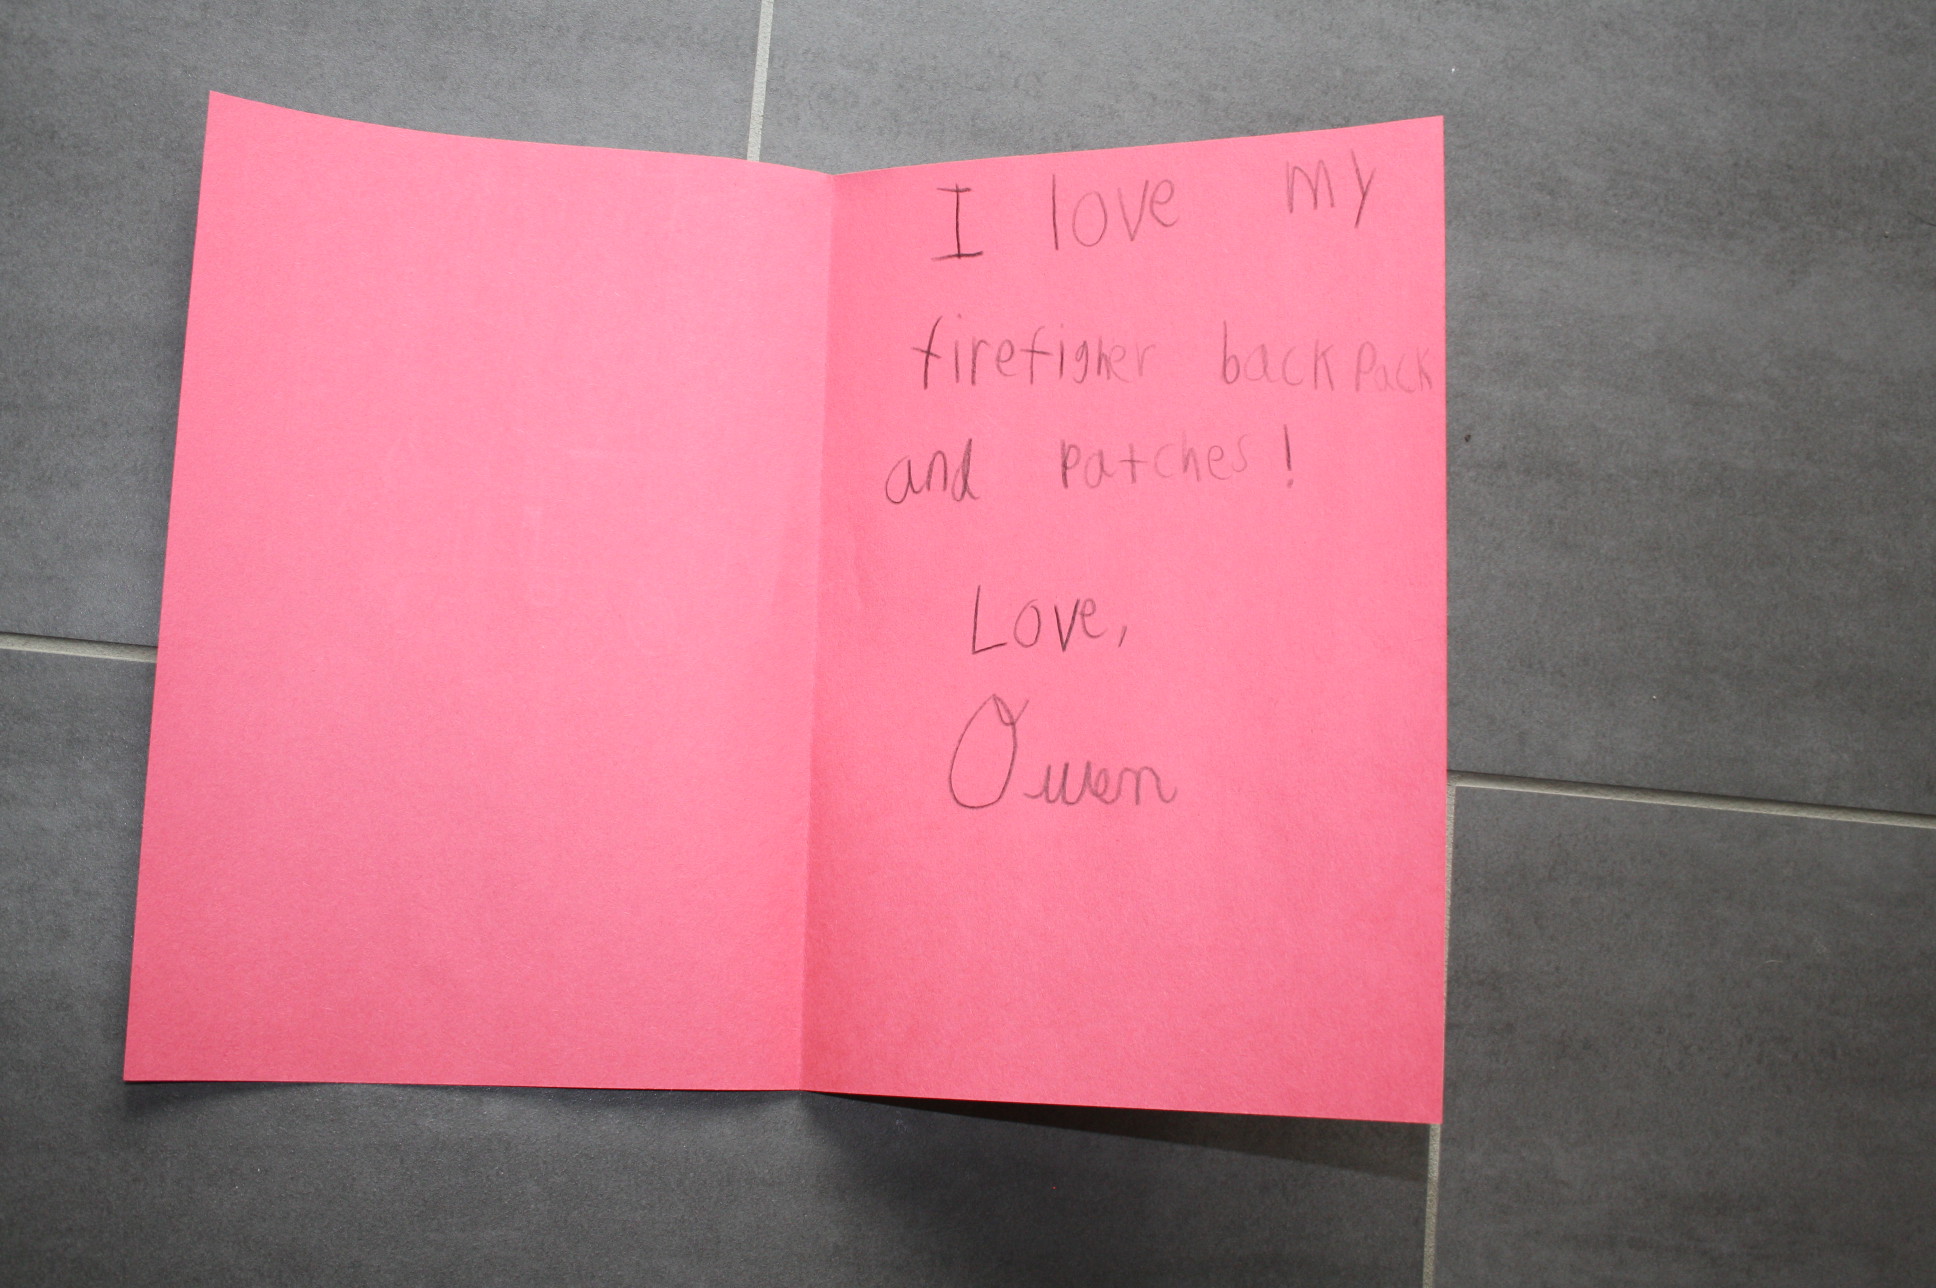 I love my
firefigher backpack
and patches!
Love,
Owen